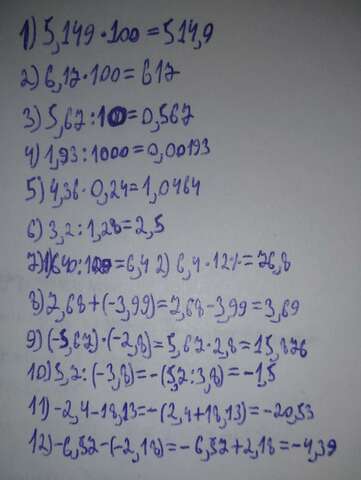 1) 5,149·100=514,9
2) 6,17·100=617
3) 5,67:10=0,567
4) 1,93:1000=0,00193
5) 4,36·0,24=1,0464
6) 3,2:1,28=2,5
7) 1) 640:100=6,4 2) 6,4·12%=76,8
8) 7,68+(-3,99)=7,68-3,99=3,69
9) (-5,67)·(-2,8)=5,67·2,8=15,876
10) 5,7:(-3,8)=-(5,7:3,8)=-1,5
11) -2,4-18,13=-(2,4+18,13)=-20,53
12) -6,57-(-2,18)=-6,57+2,18=-4,39